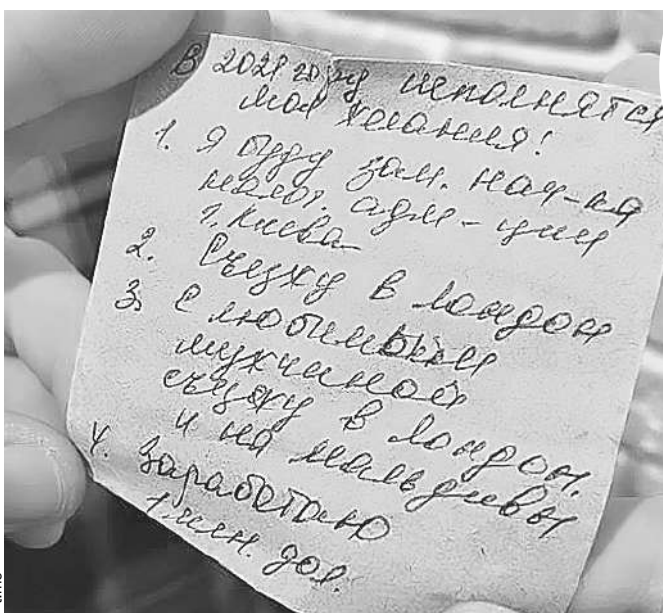 В 2021 году исполнятся
мои желания!
1. Я буду зам. нач-ка
налог. адм-ции
г. Киева
2. Съезжу в Лондон
3. С любимым
мужчиной
съезжу в Лондон.
и на Мальдивы
4. Заработаю
1 млн. дол.